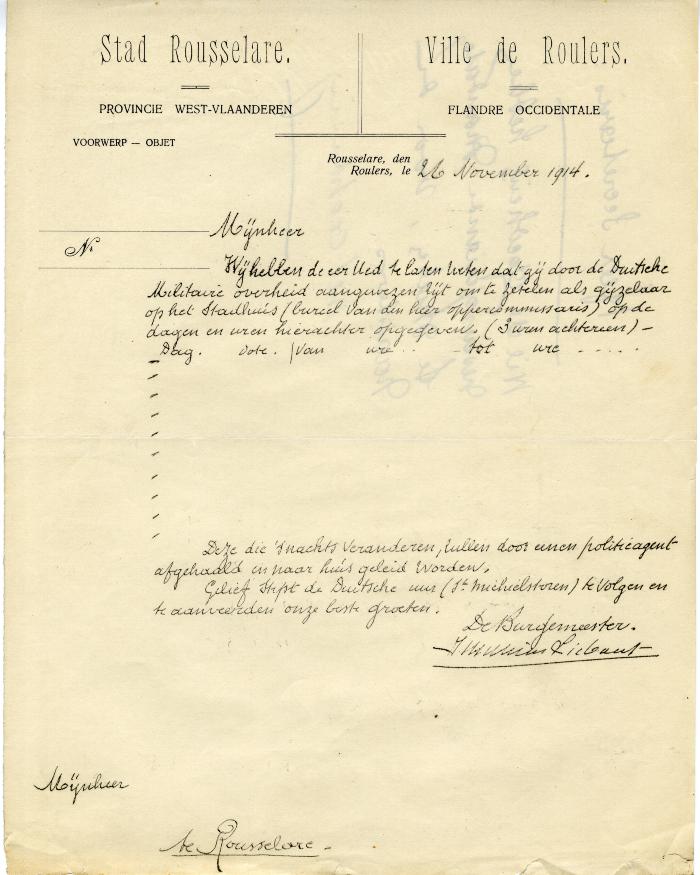 Stad Rousselare.
Ville de Roulers.
PROVINCIE WEST-VLAANDEREN
FLANDRE OCCIDENTALE
VOORWERP — OBJET
Rousselare, den
Roulers, le 26 November 1914.
Mijnheer
N.
Wij hebben de eer Ued te laten weten dat gij door de Duitsche
Militaire overheid aangewezen zijt om te zetelen als gijzelaar
op het Stadhuis (bureel van den heer oppercommissaris) op de
dagen en uren hierachter opgegeven. (3 uren achtereen) -
Dag. date. van ure .. tot ure - . . .
Deze die 's nachts veranderen, zullen door eenen politieagent
afgehaald en naar huis geleid worden.
Gelief stipt de Duitsche uur (St Michielstoren) te volgen en
te aanveerden onze beste groeten.
De Burgemeester.
Liebaert
Mijnheer
te Rousselare -